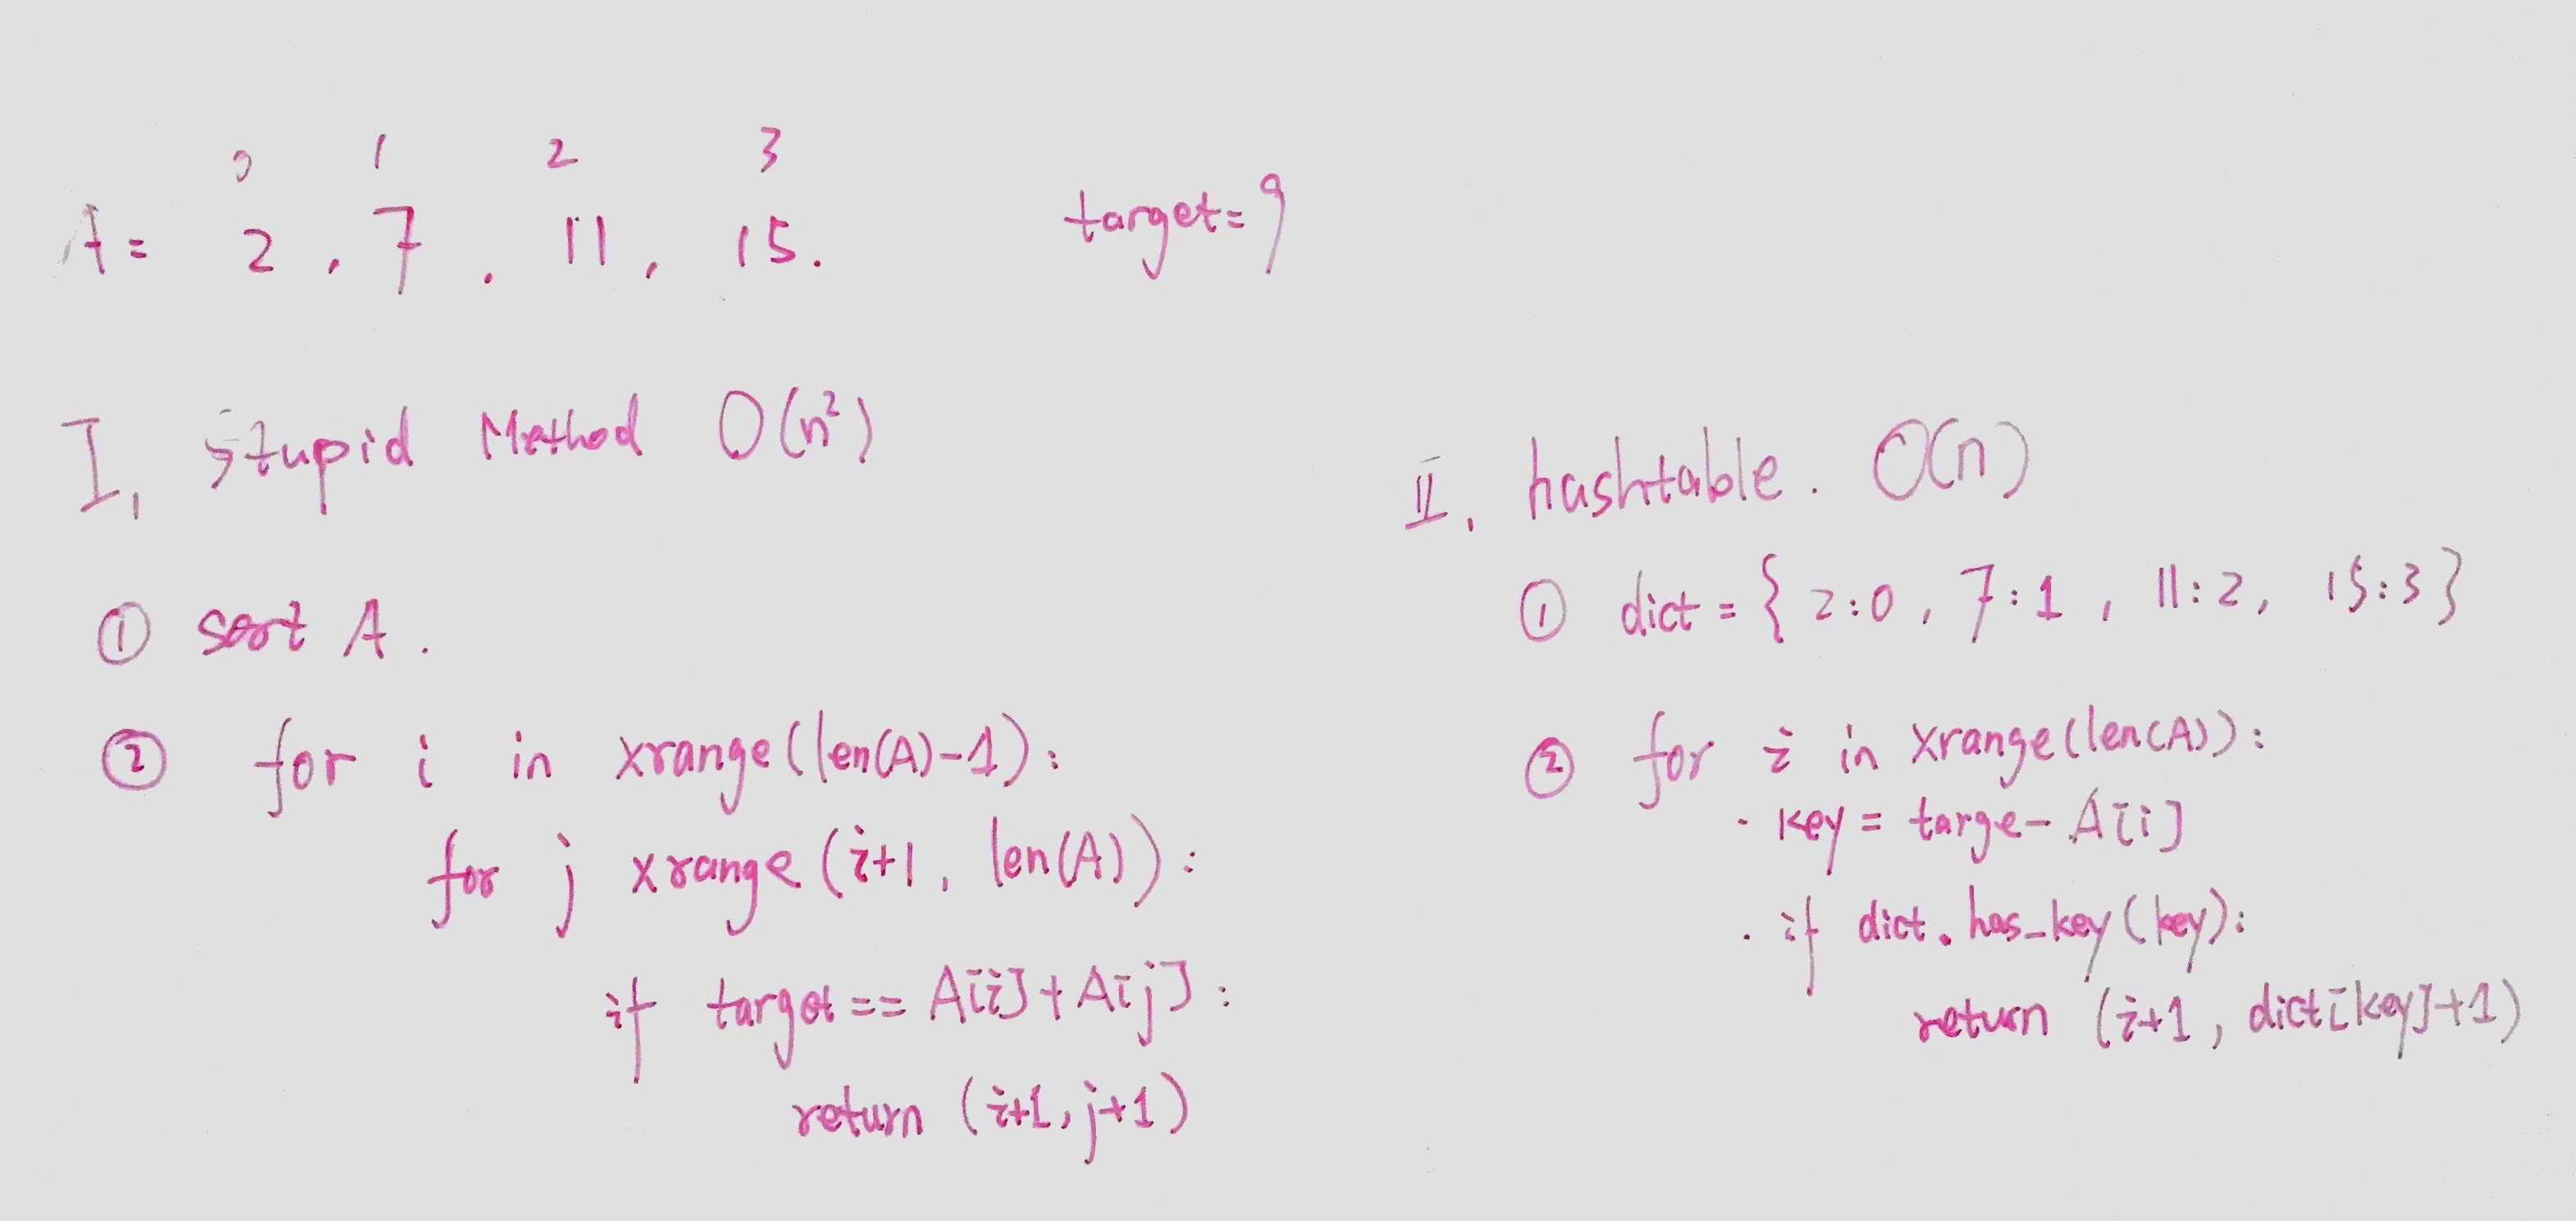 0 1 2 3
A= 2 , 7 . 11 , 15. target=9
I, Stupid Method O(n²)
① sort A .
② for i in xrange(len(A)-1):
for j xrange(i+1, len(A)):
if target==A[i]+A[j]:
return (i+1,j+1)
II, hashtable. O(n)
① dict={ 2:0 , 7:1 , 11:2, 15:3}
② for i in xrange(len(A)):
· key = targe-A[i]
. if dict.has_key(key):
return (i+1, dict[key]+1)